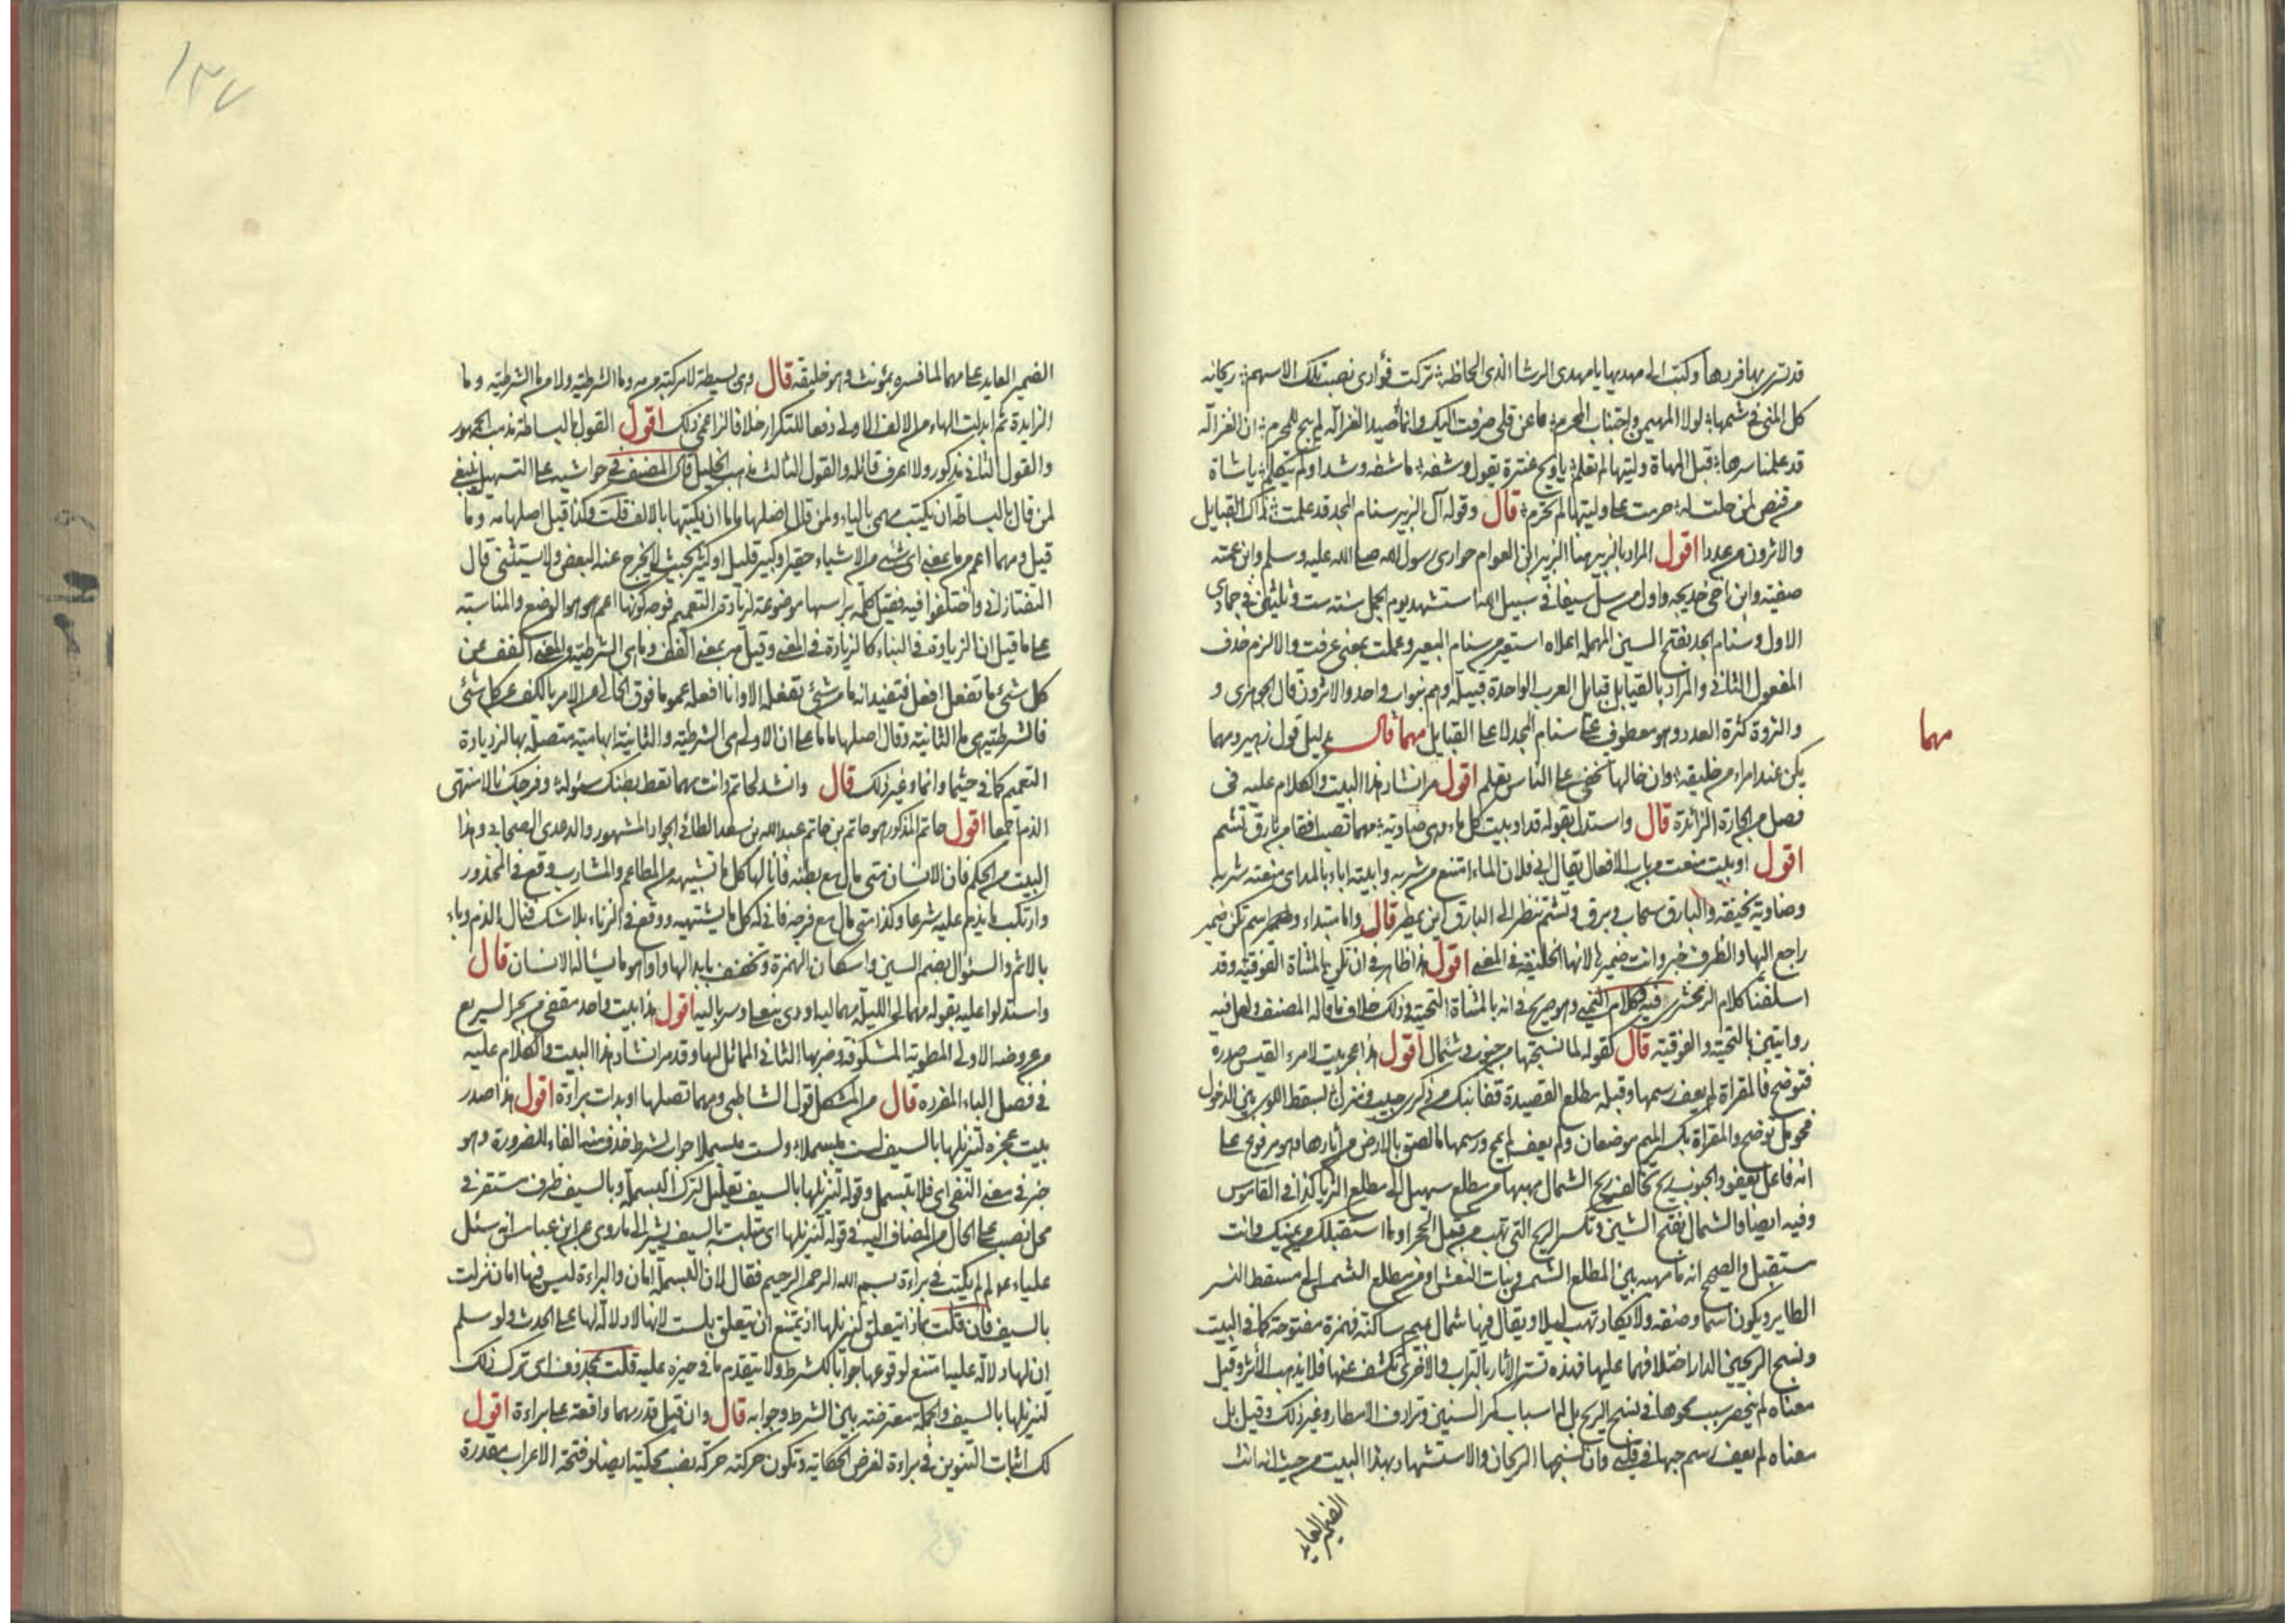 قدترى بها فردها وكتب الى مهديها يا مهدى الرشا الذى الحاظه تركت فؤادى نصب تلك الاسهم ريحانه
كل المنى فى شمها لولا المهيمن واجتناب المحرم ما عن قلى صرفت اليك وانما صيد الغزاله لم يبح للمحرم ان الغزاله
قد علمنا سرها قبل المهاة وليتها لم تعلم يا ويح عنترة يقول وشفه ما شفه وشدا ولم يتكلم يا شاة
من قنص لمن حلت له حرمت على وليتها لم تحرم قال وقوله آل الزبير سنام المجد قد علمت ذاك القبايل
والاثرون من عددا اقول المراد بالزبير هنا الزبير ابن العوام حوارى رسول الله صلى الله عليه وسلم وابن عمته
صفيته وابن اخى خديجه واول من سل سيفا فى سبيل الله استشهد يوم الجمل سنته ست وثلثين فى جمادى
الاول وسنام المجد بفتح السين المهمله اعلاه استعير من سنام البعير وعلمت بمعنى عرفت والا لزم حذف
المفعول الثانى والمراد بالقبايل قبايل العرب الواحدة قبيله وهم بنو اب واحد والاثرون قال الجوهرى و
والثروة كثرة العدد وهو معطوف على سنام المجد لا على القبايل مهما قال بدليل قول زهير ومهما
مهما
يكن عند امراء من خليقه وان خالها تخفى على الناس تعلم اقول مر انشاد هذا البيت والكلام عليه فى
فصل من الجارة الزائدة قال واستدل بقوله قد اوبيت كل ماء وهى ضاويته مهما تصب افقا من بارق تشم
اقول اوبيت منعت من باب الافعال يقال ابى فلان الماء امتنع من شربه وابيته اباء بالمد اى منعته شربه
وضاويته نحيفته والبارق سحاب وبرق وتشتم تنظر الى البارق اين يمطر قال واما مبتداء واسم تكن ضمير
راجع اليها والظرف خبر وانت ضميرها لانها الخليقه فى المعنى اقول هذا ظاهر فى ان تكن بالمثناة الفوقيته وقد
اسلفنا كلام الزمخشرى فيه وكلام اليمنى وهو صريح فى انه بالمثناة التحتيه وذلك خلاف ما قاله المصنف ولعل فيه
روايتين بالتحتيه والفوقيته قال كقوله لما نسجتها من جنوب وشمال اقول هذا عجز بيت لامرء القيس صدره
فتوضح فالمقراة لم يعف رسمها وقبله مطلع القصيدة قفا نبك من ذكرى حبيب ومنزل بسقط اللوى بين الدخول
فحومل توضح والمقراة بكسر الميم موضعان ولم يعف لم يمح ورسمها ما لصق بالارض من آثارها وهو مرفوع على
انه فاعل يعفو والجنوب ريح تخالف ريح الشمال مهبها من مطلع سهيل الى مطلع الثريا كذا فى القاموس
وفيه ايضا والشمال بفتح الشين وتكسر الريح التى تهب من قبل الحجر او ما استقبلك عن يمينك وانت
ستقبل والصحيح انه ما مهبه بين المطلع الشمس وبنات النعش او من مطلع الشمس الى مسقط النسر
الطاير ويكون اسما وصفته ولا يكاد تهب ليلا ويقال فيها شمال بميم ساكنة فهمزة مفتوحة كما فى البيت
ونسج الريحين الدار اختلافهما عليها فهذه تستر الاثار بالتراب والاخرى تكشف عنها فلا يذهب الأثر وقيل
معناه لم ينحصر سبب محوها فى نسج الريح بل لها اسباب كمر السنين وترادف الامطار وغير ذلك وقيل بل
معناه لم يعف رسم حبها فى قلبى وان نسجتها الريحان والاستشهاد بهذا البيت من حيث انه انث
الضمير العايد
١٣٧
الضمير العايد على مهما لما فسره بمؤنث وهو خليقه قال وهى بسيطة لا مركبته من مه وما الشرطيه ولا من ما الشرطيته وما
الزايدة ثم ابدلت الهاء من الالف الاولى دفعا للتكرار خلافا لزاعمى ذلك اقول القول بالبساطه مذهب الجمهور
والقول الثانى مذكور ولا اعرف قائله والقول الثالث مذهب الخليل قال المصنف فى حواشيه على التسهيل ينبغى
لمن قال بالبساطه ان يكتب مهمى بالياء ولمن قال اصلها ماما ان يكتبها بالالف قلت وكذا قيل اصلها مه وما
قيل ومهما اعم من ما بمعنى اى شئ من الاشياء حقير او كبير قليل او كثير بحيث لا يخرج عنه البعض ولا يستثنى قال
التفتازانى واختلفوا فيه فقيل كلمه براسها موضوعته لزيادة التعميم فوجه كونها اعم هو هو الوضع والمناسبته
على ما قيل ان الزيادة فى البناء كالزيادة فى المعنى وقيل مه بمعنى اكفف وما هى الشرطيته والمعنى اكفف عن
كل شئ ما تفعل افعل فتفيد انه ما من شئ تفعله الا وانا افعله عموما فوق الحالى من الامر بالكف عن كل شئ
فالشرطيته هى ما الثانيته وقال اصلها ماما على ان الاولى هى الشرطيته والثانيته ابهاميته متصلة بها لزيادة
التعميم كما فى حيثما وانما وغير ذلك قال وانشد لحاتم وانت مهما تعط بطنك سئوله وفرجك نالا منتهى
الذم اجمعا اقول حاتم المذكور هو حاتم بن عبد الله بن سعد الطائى الجواد المشهور والد عدى الصحابى وهذا
البيت من الحكم فان الانسان متى مال مع بطنه فانالها كل ما تشتهيه من المطاعم والمشارب وقع فى المحذور
وارتكب ما يذم عليه شرعا وكذا متى مال مع فرجه فانى له كل ما يشتهيه ووقع فى الزناء بلا شك فنال الذم وباء
بالاثم والسئوال بضم السين واسكان الهمزة وتخفف بابدالها واوا هو ما يساله الانسان قال
واستدلوا عليه بقوله مهما لى الليله مهما ليه اودى بنعلى وسرباليه اقول هذا بيت واحد مقفى من بحر السريع
من عروضه الاولى المطويه المكشوفه وضربها الثانى المماثل لها وقد مر انشاد هذا البيت والكلام عليه
فى فصل الباء المفرده قال من المشكل قول الشاطبى ومهما تصلها او بدات براءة اقول هذا صدر
بيت عجزه لتنزيلها بالسيف لست مبسملا ولست مبسملا جواب الشرط حذف منه الفاء للضرورة وهو
خبر فى معنى النفى اى فلا تبسمل وقوله لتنزيلها بالسيف تعليل لترك البسملة وبالسيف ظرف مستقر فى
محل نصب على الحال من المضاف اليه فى قوله لتنزيلها اى متلبسة بالسيف يشير الى ما روى عن ابن عباس انه سئل
علياء عم لم لم يكتب فى براءة بسم الله الرحمن الرحيم فقال لان البسملة امان والبراءة ليس فيها امان نزلت
بالسيف فان قلت بماذا يتعلق لتنزيلها اذ يمتنع ان يتعلق بلست لانها لا دلاله لها على الحدث ولو سلم
ان لها دلالة عليه امتنع لوقوعها جوابا للشرط ولا يتقدم ما فى حيزه عليه قلت بمحذوف اى ترك ذلك
لتنزيلها بالسيف والجمله معترضته بين الشرط وجوابه قال وان قيل قدر مهما واقعة على براءة اقول
لك اثبات التنوين فى براءة لغرض الحكايه وتكون حركته حركه نصب محكيته ايضا وفتحة الاعراب مقدرة